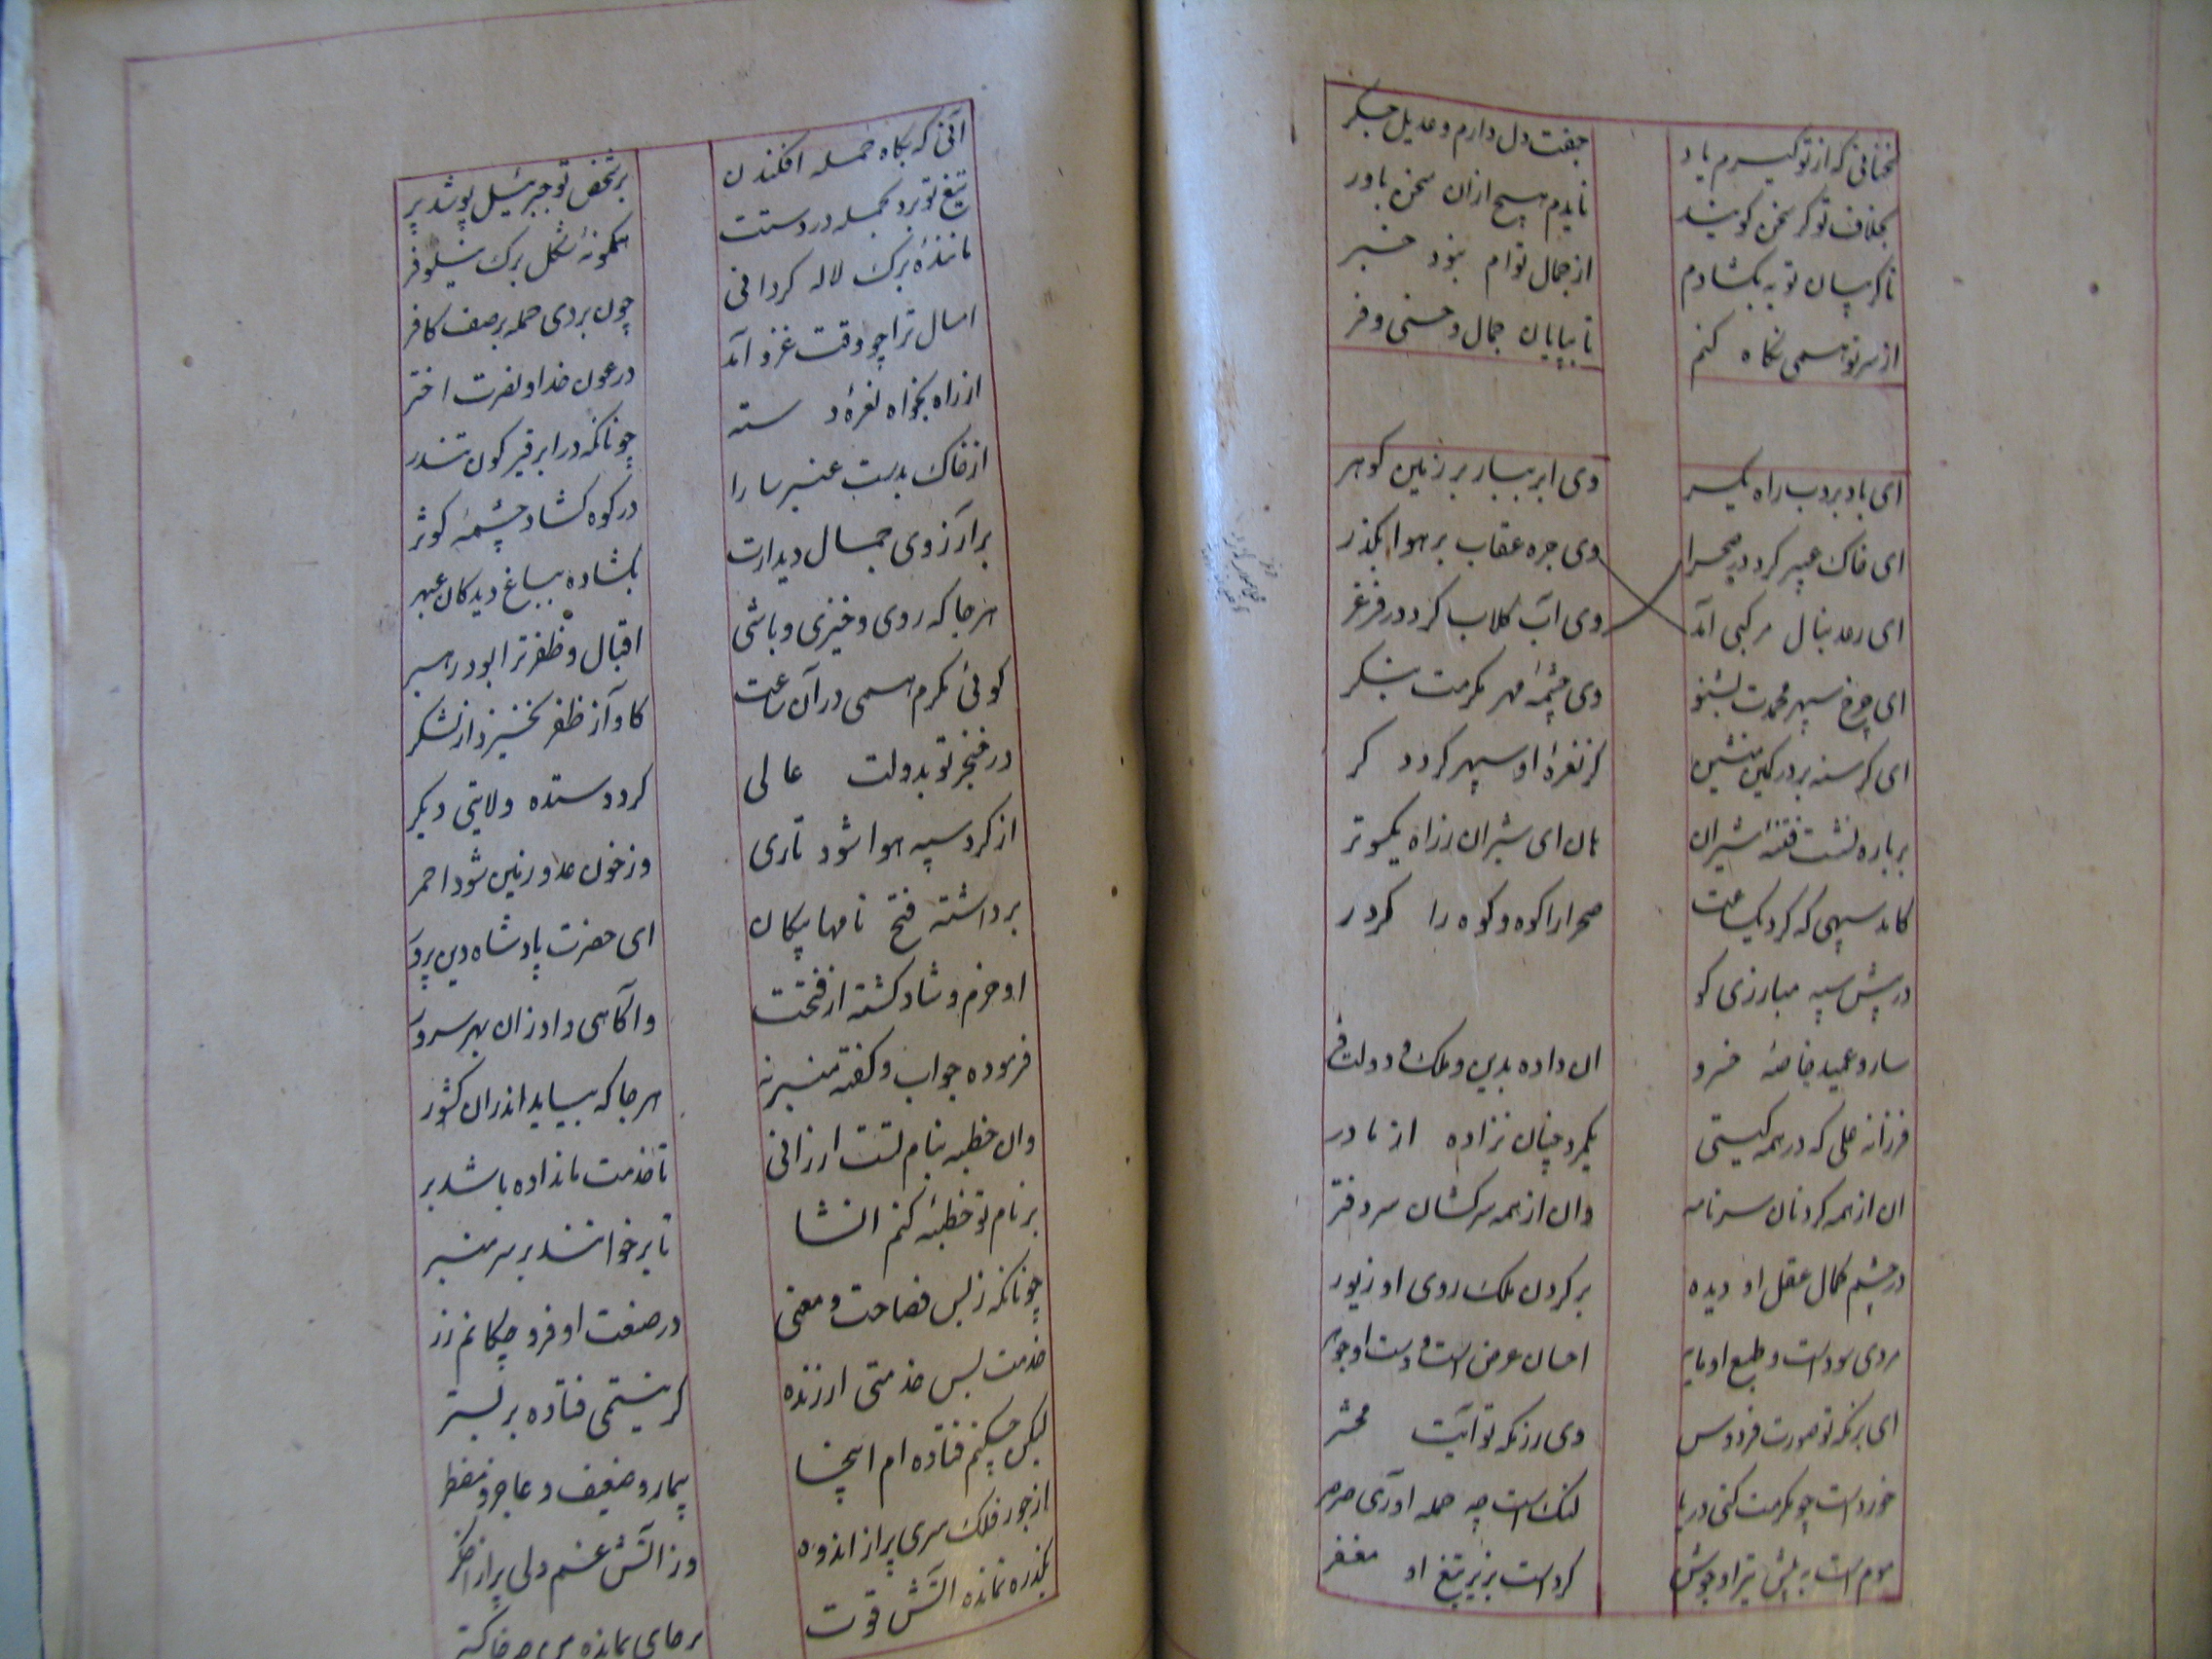 سخنانی که از تو گیرم یاد جفت دل دارم و عدیل جگر
بخلاف تو گر سخن گویند نایدم هیچ ازان سخن باور
تا گریبان توبه بگشادم از جمال توام نبود خبر
از سر تو همی نگاه کنم تا بپایان جمال و حسنی و فر
ای باد بروب راه یکسر وی ابر ببار بر زمین گوهر
ای خاک عبیر گرد در صحرا وی جره عقاب بر هوا بگذر
ای رعد بنال مرکبی آمد وی آب گلاب گرد در فرغر
ای چرخ سپهر محمدت بشنو وی چشمهٔ مهر مکرمت بنگر
ای گرسنه ببر در کمین منشین کز نعرهٔ او سپهر گردد کر
بر باره نشست فتنهٔ شیران هان ای شیران ز راه یکسوتر
کامد سپهی که کرد یک ساعت صحرا را کوه و کوه را کردر
در پیش سپه مبارزی کو
سارو عمید خاصهٔ خسرو ان داده بدین و ملک و دولت فر
فرزانه علی که در همه گیتی یکمرد چنان نزاده از مادر
ان از همه گردنان سرنامه وان از همه سرکشان سر دفتر
در چشم کمال عقل او دیده بر گردن ملک روی او زیور
مردی سود است و طبع او مایه احسان عرض است و دست او جوهر
ای بزمگه تو صورت فردوس وی رزمگه تو آیت محشر
خورد است چو مکرمت کنی دریا لنگ است چو حمله آوری صرصر
موم است به پیش تیر او جوشن گرد است بزیر تیغ او مغفر
آنی که بگاه حمله افکندن بر شخص تو جبرئیل پوشد پر
تیغ تو برد بحمله در دستت همگونهٔ شکل برگ نیلوفر
مانندهٔ برگ لاله گردانی چون بردی حمله بر صف کافر
امسال ترا چو وقت غزو آمد در عون خدا و نصرت اختر
از راه بخواه نعره دسته چونانکه در ابر قیرگون تندر
از خاک بدست عنبر سارا در کوه گشاد چشمهٔ کوثر
بر آرزوی جمال دیدارت بگشاده بباغ دیدگان عبهر
هر جا که روی و خیزی و باشی اقبال و ظفر ترا بود رهبر
گوئی نگرم همی در آن ساعت کاواز ظفر بخیزد از لشکر
در خنجر تو بدولت عالی گردد ستده ولایتی دیگر
از گرد سپه هوا شود تاری وز خون عدو زمین شود احمر
برداشته فتح نامها پیکان ای حضرت پادشاه دین پرور
او خرم و شاد گشته از فتحت واگاهی داد زان بهر سرور
فرموده جواب و گفته هر جا که بیاید اندران کشور
وان خطبه بنام تست ارزانی تا خدمت ما نداده باشد بر
بر نام تو خطبهٔ کنم انشا تا برخوانند بر سر منبر
چونانکه ز بس فصاحت و معنی در صنعت او فرو چکانم زر
خدمت بس خدمتی ارزنده گر نیستمی فتاده بر بستر
لیکن چکنم فتاده ام اینجا بیمار و ضعیف و عاجز و مضطر
از جور فلک سری پر از اندوه وز آتش غم دلی پر از اخگر
یکذره نمانده آتش قوت بر جای نمانده